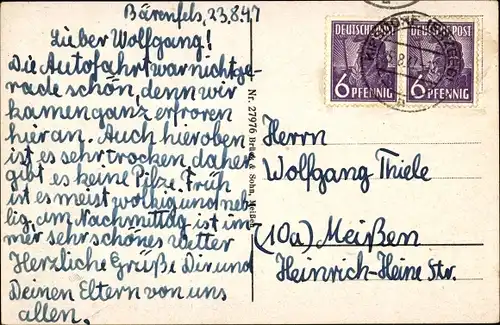 Bärenfels, 23.8.47
Lieber Wolfgang!
Die Autofahrt war nicht ge-
rade schön, denn wir
kamen ganz erfroren
hier an. Auch hier oben
ist es sehr trocken daher
gibt es keine Pilze. Früh
ist es meist wolkig und neb-
lig, am Nachmittag ist im-
mer sehr schönes Wetter
Herzliche Grüße Dir und
Deinen Eltern von uns
allen.
Nr. 27976 Brück & Sohn, Meißen
DEUTSCHE POST
6 PFENNIG
DEUTSCHE POST
6 PFENNIG
Herrn
Wolfgang Thiele
(10a) Meißen
Heinrich-Heine Str.